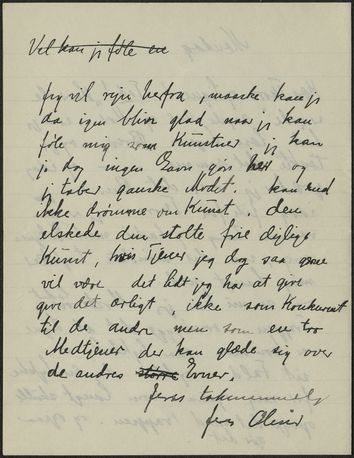 Vel kan jeg føle en
Jeg vil rejse herfra, maaske kan jeg
da igen blive glad naar jeg kan
føle mig som Kunstner. jeg kan
jeg dog ingen Gavn gøre her og
jeg taber ganske Modet. kan med
ikke drømme om Kunst. den
elskede den stolte, frie dejlige
Kunst, hvis Tjener jeg dog saa gerne
vil være det lidt jeg har at give
give det ærligt, ikke som Konkurrent
til de andre men som en tro
Medtjener der kan glæde sig over
de andres større Evner.
Jeres taknemmelige